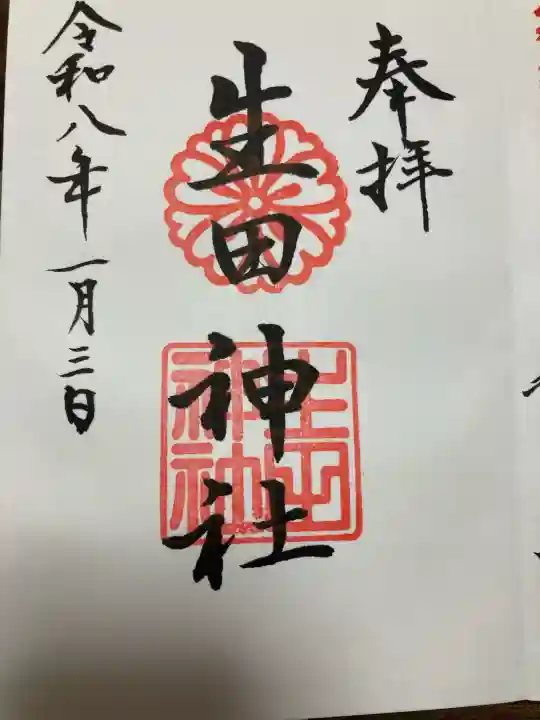 奉拝
生田神社
生田
神社
令和八年一月三日